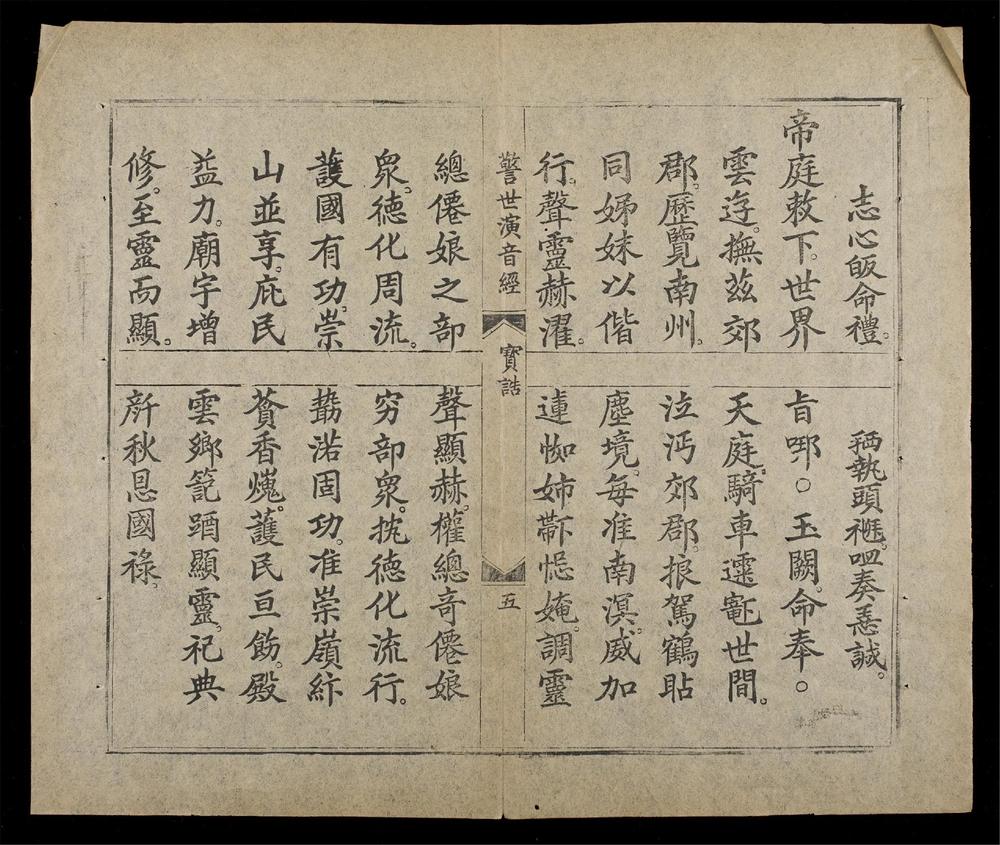 志心皈命禮。
帝庭敕下。世界
雲遊。撫茲郊
郡。歷覽南州。
同姊妹以偕
行。聲靈赫濯。
總僊娘之部
衆。徳化周流。
護國有功。崇
山並享。庇民
益力。廟宇增
修。至靈而顯。
警世演音經
寶誥
五
執頭奏誠。
旨○玉闕。命奉○
天庭。騎車世間。
沔郊郡。駕鶴
塵境。每准南溟。威加
連姉調靈
聲顯赫。權總奇僊娘
穷部衆。扰徳化流行。
渃固功。准崇嶺
香護民亘飭。殿
雲鄉顯靈。祀典
秋恩國祿。